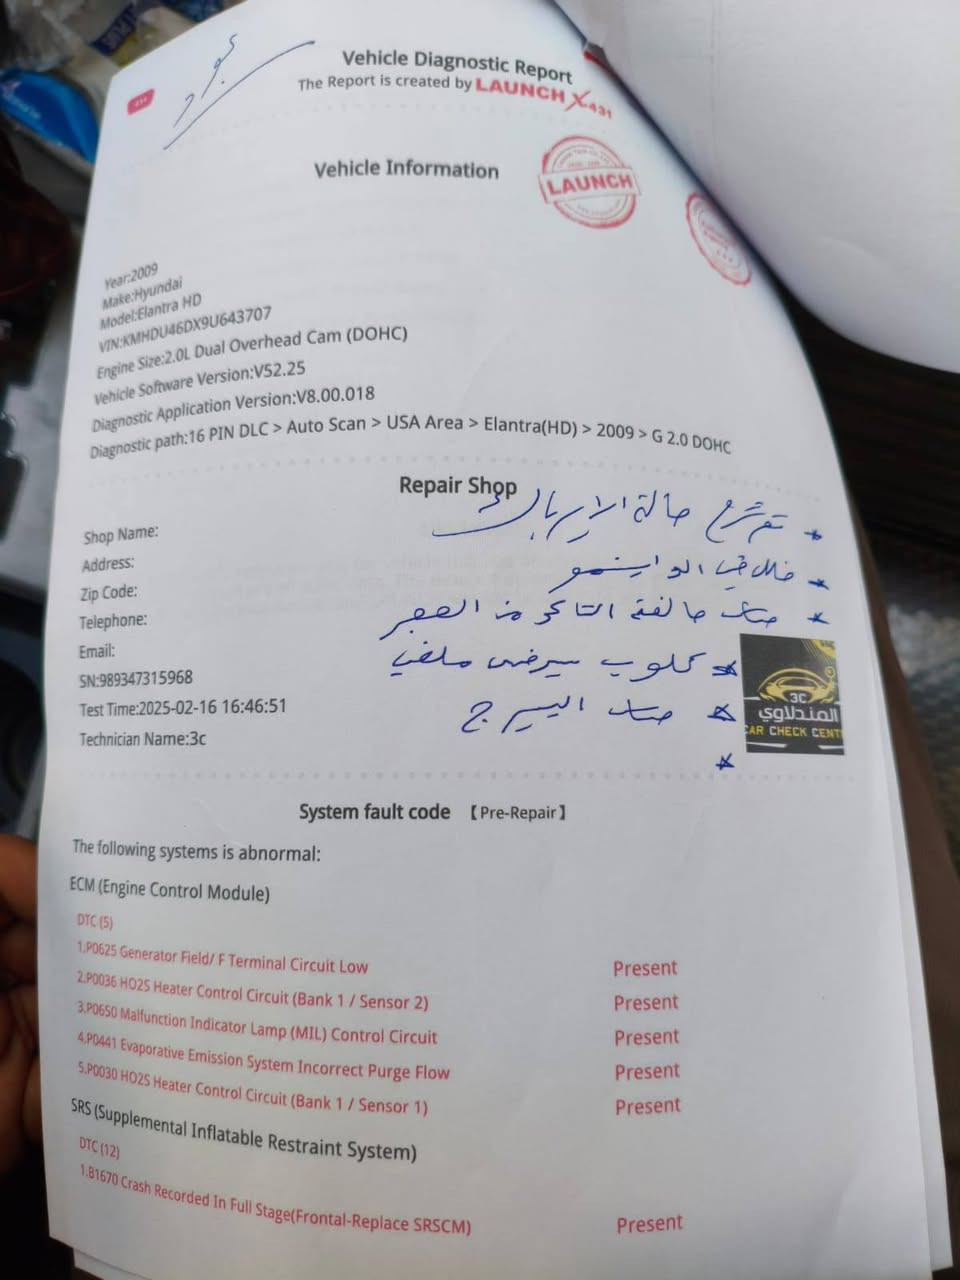 Vehicle Diagnostic Report
The Report is created by LAUNCH X431
Vehicle Information
LAUNCH
Year:2009
Make:Hyundai
Model:Elantra HD
VIN:KMHDU46DX9U643707
Engine Size:2.0L Dual Overhead Cam (DOHC)
Vehicle Software Version:V52.25
Diagnostic Application Version:V8.00.018
Diagnostic path:16 PIN DLC > Auto Scan > USA Area > Elantra(HD) > 2009 > G 2.0 DOHC
Repair Shop
Shop Name:
Address:
Zip Code:
Telephone:
Email:
SN:989347315968
Test Time:2025-02-16 16:46:51
Technician Name:3c
* تم شرح حالة الايرباك
* خلل في الداينمو
*
*
*
*
3C
المندلاوي
CAR CHECK CENT
System fault code 【Pre-Repair】
The following systems is abnormal:
ECM (Engine Control Module)
DTC (5)
1.P0625 Generator Field/ F Terminal Circuit Low Present
2.P0036 HO2S Heater Control Circuit (Bank 1 / Sensor 2) Present
3.P0650 Malfunction Indicator Lamp (MIL) Control Circuit Present
4.P0441 Evaporative Emission System Incorrect Purge Flow Present
5.P0030 HO2S Heater Control Circuit (Bank 1 / Sensor 1) Present
SRS (Supplemental Inflatable Restraint System)
DTC (12)
1.B1670 Crash Recorded In Full Stage(Frontal-Replace SRSCM) Present